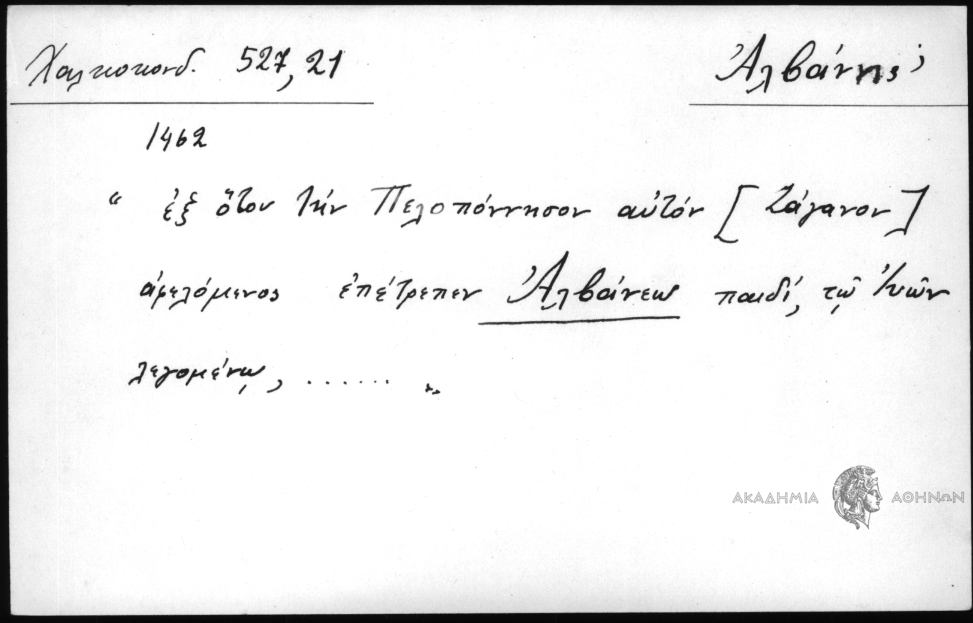 Χαλκοκονδ. 527,21 Ἀλβάνης
1462
“ ἐξ ὅτου τὴν Πελοπόννησον αὐτόν [Ζάγανον]
ἀφελόμενος ἐπέτρεπεν Ἀλβάνεω παιδί, τῷ
λεγομένῳ, ...... „
ΑΚΑΔΗΜΙΑ ΑΘΗΝΩΝ